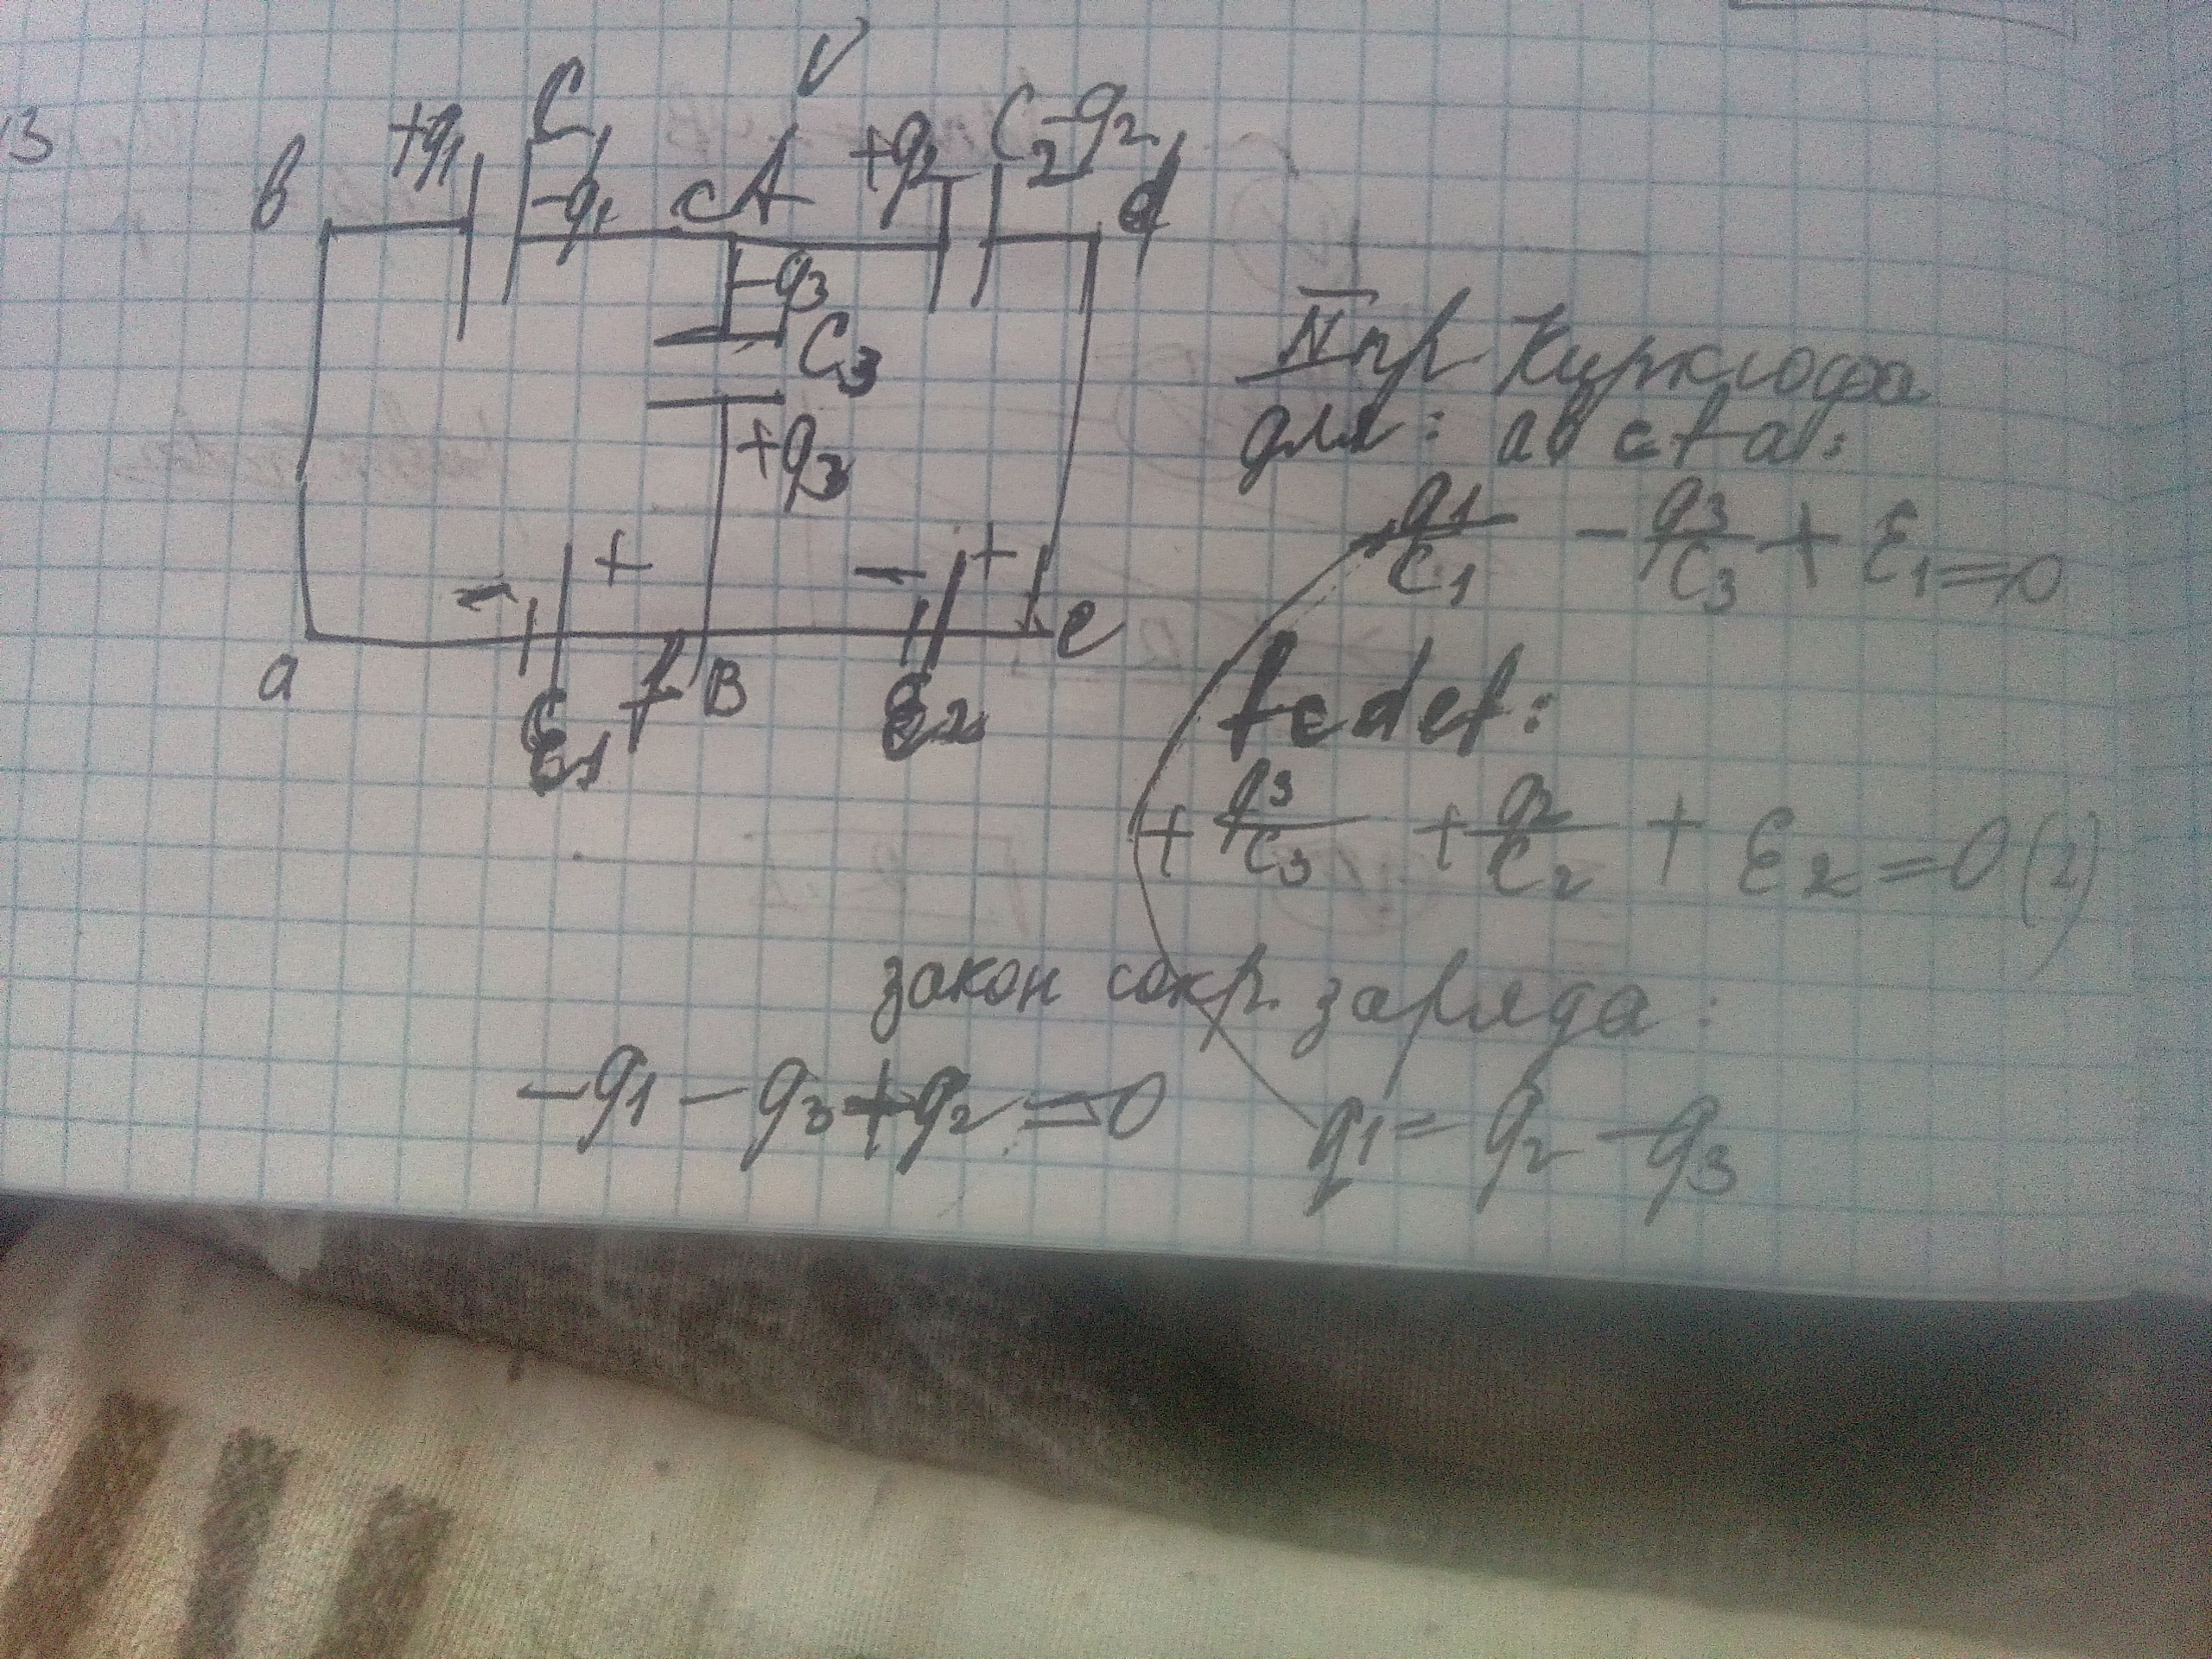 13
V
+q1 C1 -q1 cA +q2 C2 -q2
b d
-q3
C3
+q3
- + - +
a f B e
ε1 ε2
II пр Кирхгофа
для: abcfa:
q1/C1 - q3/C3 + ε1 = 0
fcdef:
+ q3/C3 + q2/C2 + ε2 = 0 (2)
закон сохр. заряда:
-q1 - q3 + q2 = 0 q1 = q2 - q3